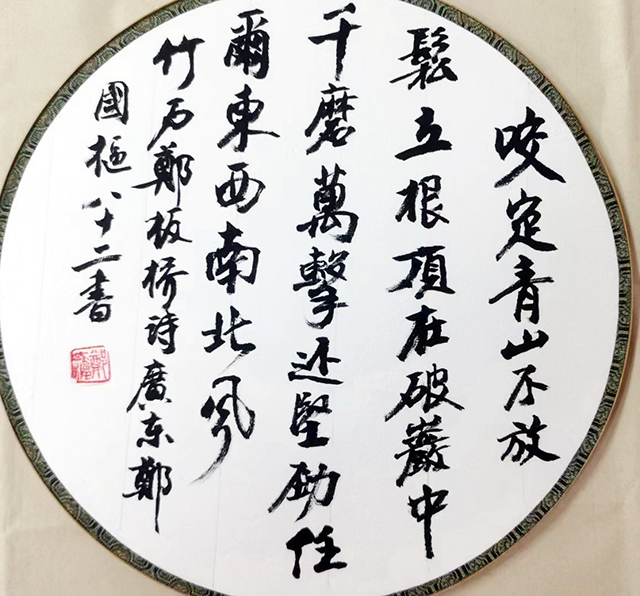 咬定青山不放
鬆立根頂在破巖中
千磨萬擊还堅劲任
爾東西南北风
竹石鄭板桥詩廣东鄭
國樞八十二書